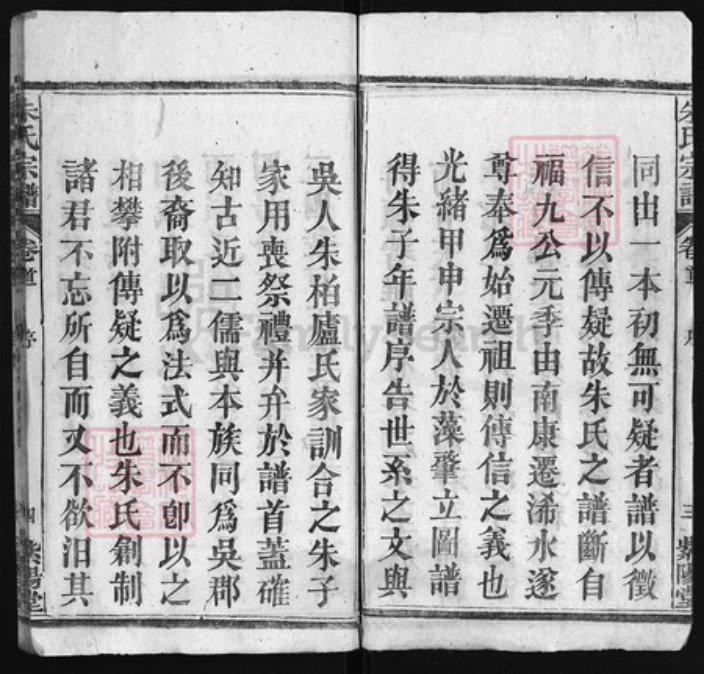 朱氏宗譜 卷首 序 三 紫陽堂
同出一本初無可疑者譜以徵
信不以傳疑故朱氏之譜斷自
福九公元季由南康遷浠水遂
尊奉爲始遷祖則傳信之義也
光緒甲申宗人於藻肇立圖譜
得朱子年譜序告世系之文與
吳人朱柏廬氏家訓合之朱子
家用喪祭禮并弁於譜首蓋確
知古近二儒與本族同爲吳郡
後裔取以爲法式而不卽以之
相攀附傳疑之義也朱氏創制
諸君不忘所自而又不欲汨其
朱氏宗譜 卷首 序 四 紫陽堂
FamilySearch